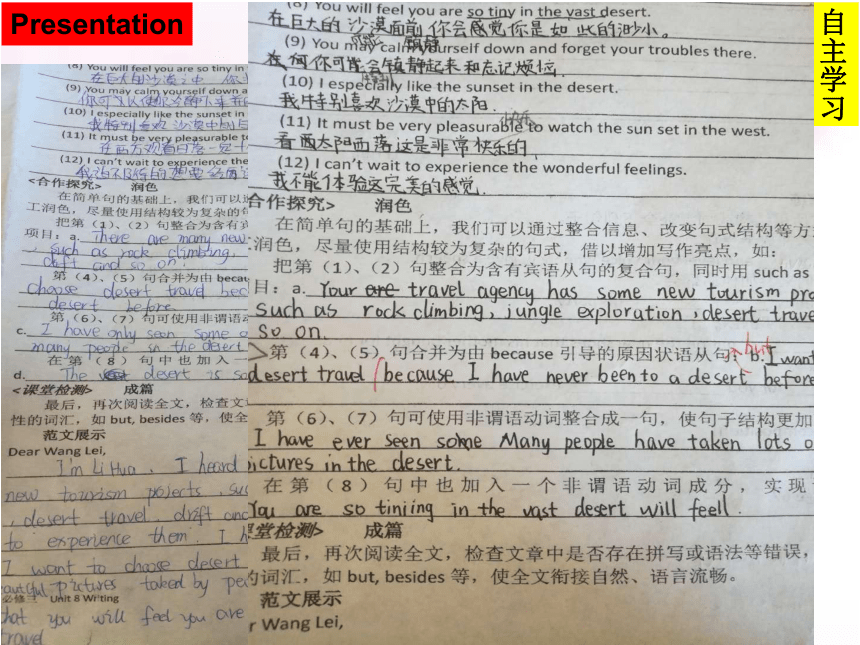 Presentation
自主学习
(8) You will feel you are so tiny in
在巨大的沙漠之中
(9) You may calm yourself down a
(10) I especially like the sunset in
我特别喜欢沙漠中的日
(11) It must be very pleasurable to
在西方观看日落一定十
(12) I can't wait to experience the
<合作探究> 润色
在简单句的基础上，我们可以通
工润色，尽量使用结构较为复杂的句
把第（1）、（2）句整合为含有宾
项目：a. There are many new
, such as rock climbing,
drift and so on.
第（4）、（5）句合并为由 becau
choose desert travel bec
desert before
第（6）、（7）句可使用非谓语动
c. I have only seen some o
many people in the desert
在第（8）句中也加入一
d. The desert is so
<课堂检测> 成篇
最后，再次阅读全文，检查文
性的词汇，如 but, besides 等，使全
范文展示
Dear Wang Lei,
I'm Li Hua. I heard
new tourism pojects, suc
, desert travel. drift and
to experience them. I h
I want to choose desert
eautiful pictures taked by peo
必修三 Unit 8 Writing
hat you will feel you are
travel
(8) You will feel you are so tiny in the vast desert.
在巨大的沙漠面前你会感觉你是如此的渺小。
(9) You may calm yourself down and forget your troubles there.
在何你可能会镇静起来和忘记烦恼
(10) I especially like the sunset in the desert.
我特别喜欢沙漠中的太阳.
(11) It must be very pleasurable to watch the sun set in the west.
看西太阳西落这是非常快乐的,
(12) I can't wait to experience the wonderful feelings.
我不能体验这完美的感觉.
合作探究> 润色
在简单句的基础上，我们可以通过整合信息、改变句式结构等方
润色，尽量使用结构较为复杂的句式，借以增加写作亮点，如：
把第（1）、（2）句整合为含有宾语从句的复合句，同时用 such as
目：a. Your are travel agency has some new tourism pro
such as rock climbing, jungle exploration, desert trave
so on.
第（4）、（5）句合并为由 because 引导的原因状语从句：b. but I want
desert travel because I have never been to a desert before
第（6）、（7）句可使用非谓语动词整合成一句，使句子结构更加
I have ever seen some Many people have taken lots o
pictures in the desert.
在第（8）句中也加入一个非谓语动词成分，实现
You are so tiniing in the vast desert will feell.
堂检测> 成篇
最后，再次阅读全文，检查文章中是否存在拼写或语法等错误，
的词汇，如 but, besides 等，使全文衔接自然、语言流畅。
范文展示
r Wang Lei,